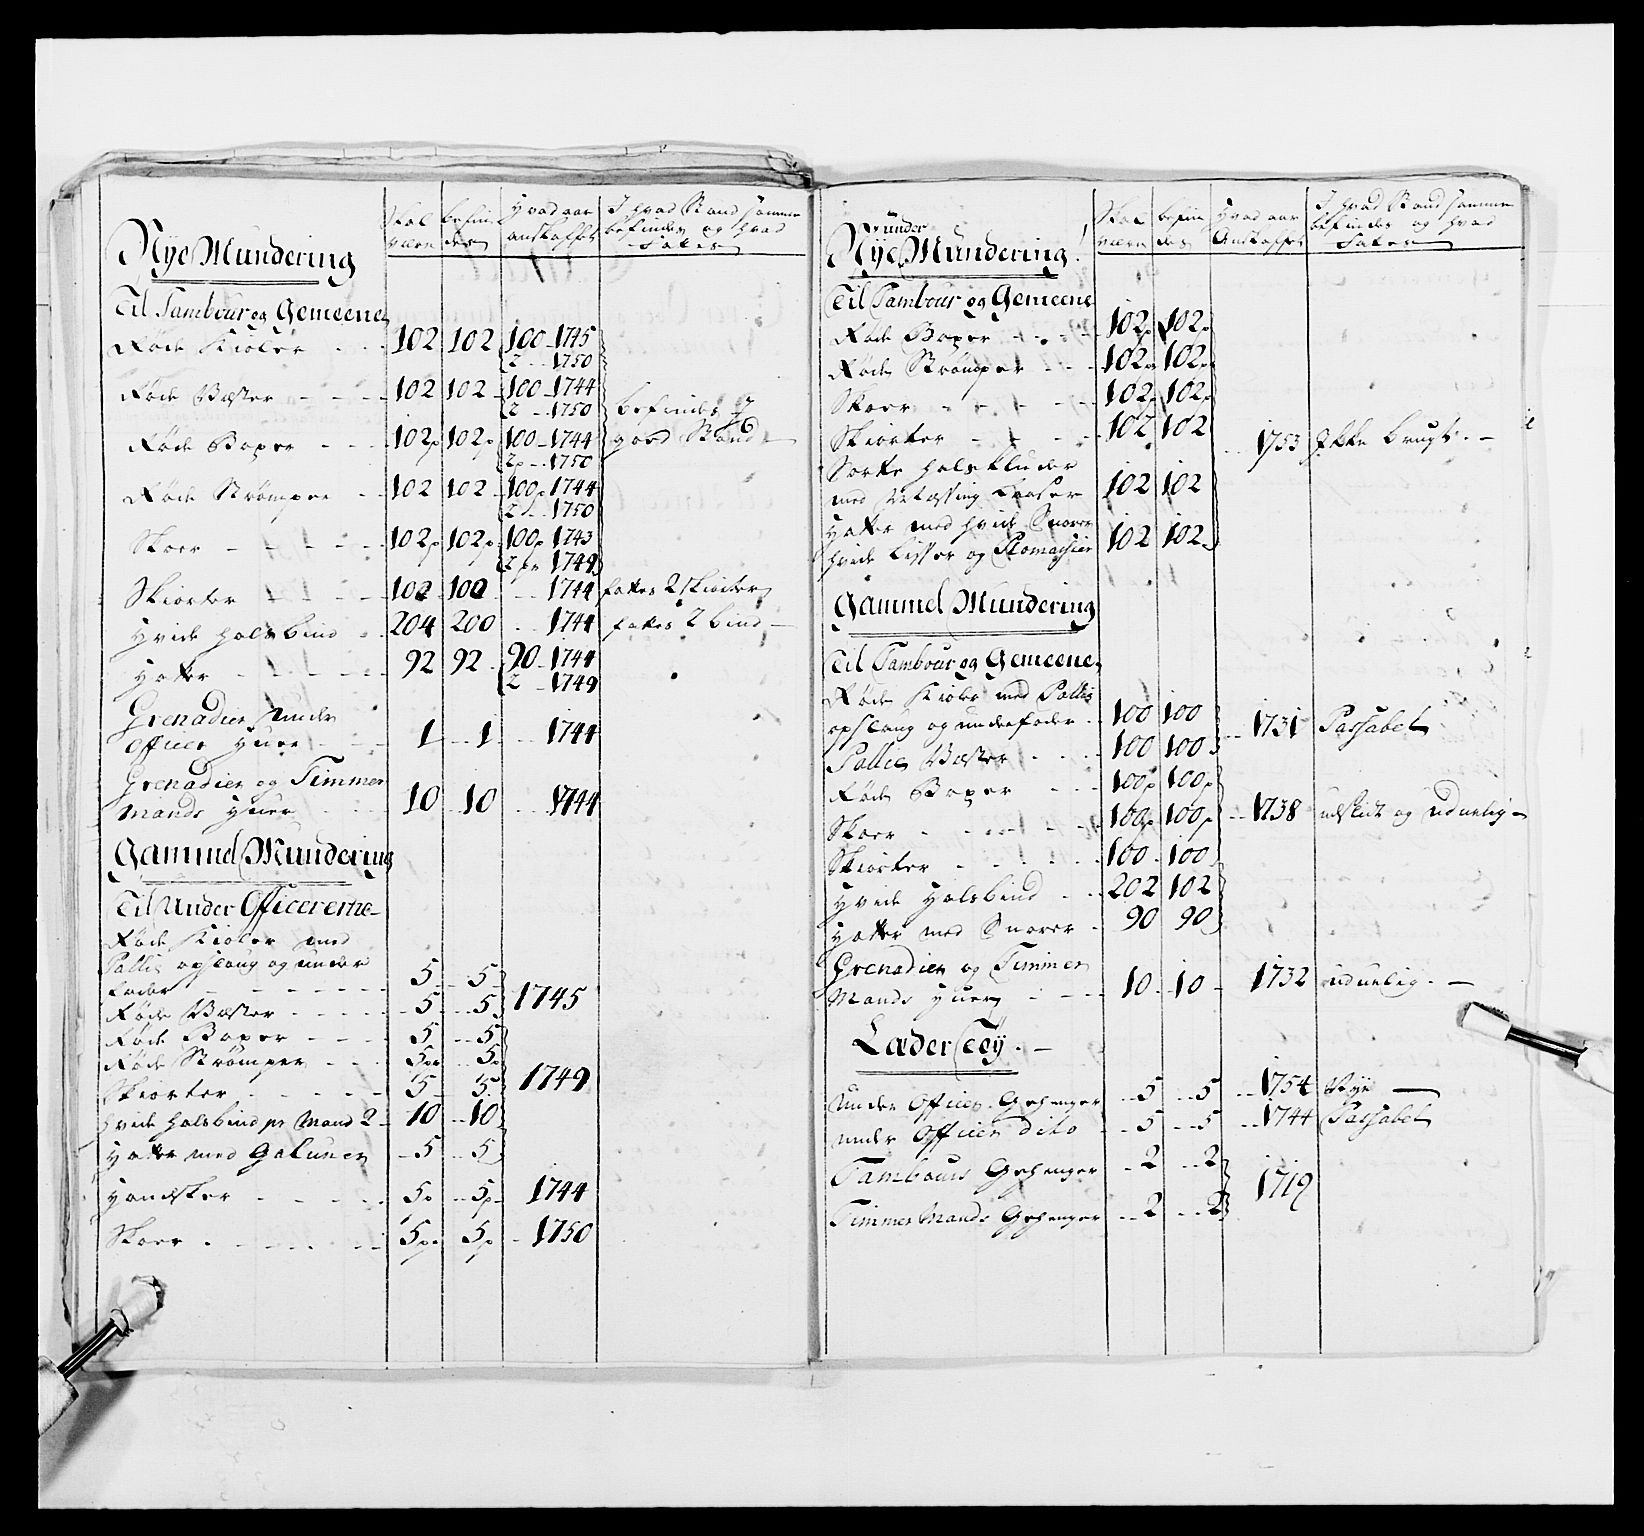 Skal være
befindes
Hvad aar anskaffet
I hvad Stand samme befindes og hvad fattes
Nye Mundering
Til Tambour og Gemeene
Røde Kioler 102 102 100 - 1745
2 - 1750
Røde Væster 102 102 100 - 1744
2 - 1750
befindes i
goed Stand
Røde Boxer 102p 102p 100 - 1744
2p - 1750
Røde Strømper 102 102 100p 1744
2 - 1750
Skoer 102p 102p 100p 1743
2 pr 1749
Skiorter 102 100 1744 fattes 2 skiorter
Hvide halsbind 204 200 1744 fattes 2 bind
Hatter 92 92 90 - 1744
2 - 1749
Grenadier under
Officer Huer 1 1 1744
Grenadier og Timmer
Mands Huer 10 10 1744
Gammel Mundering
Til Under Officererne
Røde Kioler med
Pallie opslaug og under
foder 5 5
Røde Væster 5 5 1745
Røde Boxer 5 5
Røde Strømper 5pr 5p
Skiorter 5 5 1749
hvide halsbind pr Mand 2 10 10
Hatter med Galuner 5 5
Handsker 5p 5p 1744
Skoer 5pr 5p 1750
Skal være
befindes
Hvad aar Anskaffet
I hvad Stand samme befindes og hvad fattes
under
Nye Mundering
Til Tambour og Gemeene
Røde Boxer 102p 102p
Røde Strømper 102pr 102p
Skoer 102p 102p
Skiorter 102 102
1753 Ikke brugt.
Sorte halskluder
med Messing Laaser 102 102
Hatter med hvide Snorer
hvide Lisser og Plomachier 102 102
Gammel Mundering
Til Tambour og Gemeene
Røde Kioler med Pallie
opslaug og underfoder 100 100
1731 Passabel
Pallie Væster 100 100
Røde Boxer 100p 100p
Skoer 100p 100p 1738 udslidt og uduelig
Skiorter 100 100
Hvide Halsbind 202 102
Hatter med Snorer 90 90
Grenadier og Timmer
Mands Huer 10 10 1732 uduelig.
Læder Tøÿ.
Under Officer Gehenger 5 5 1754 Nye
under Officer dito 5 5 1744 Passabel
Tambours Gehenger 2 2
1719
Timmer Mands Gehenger 2 2